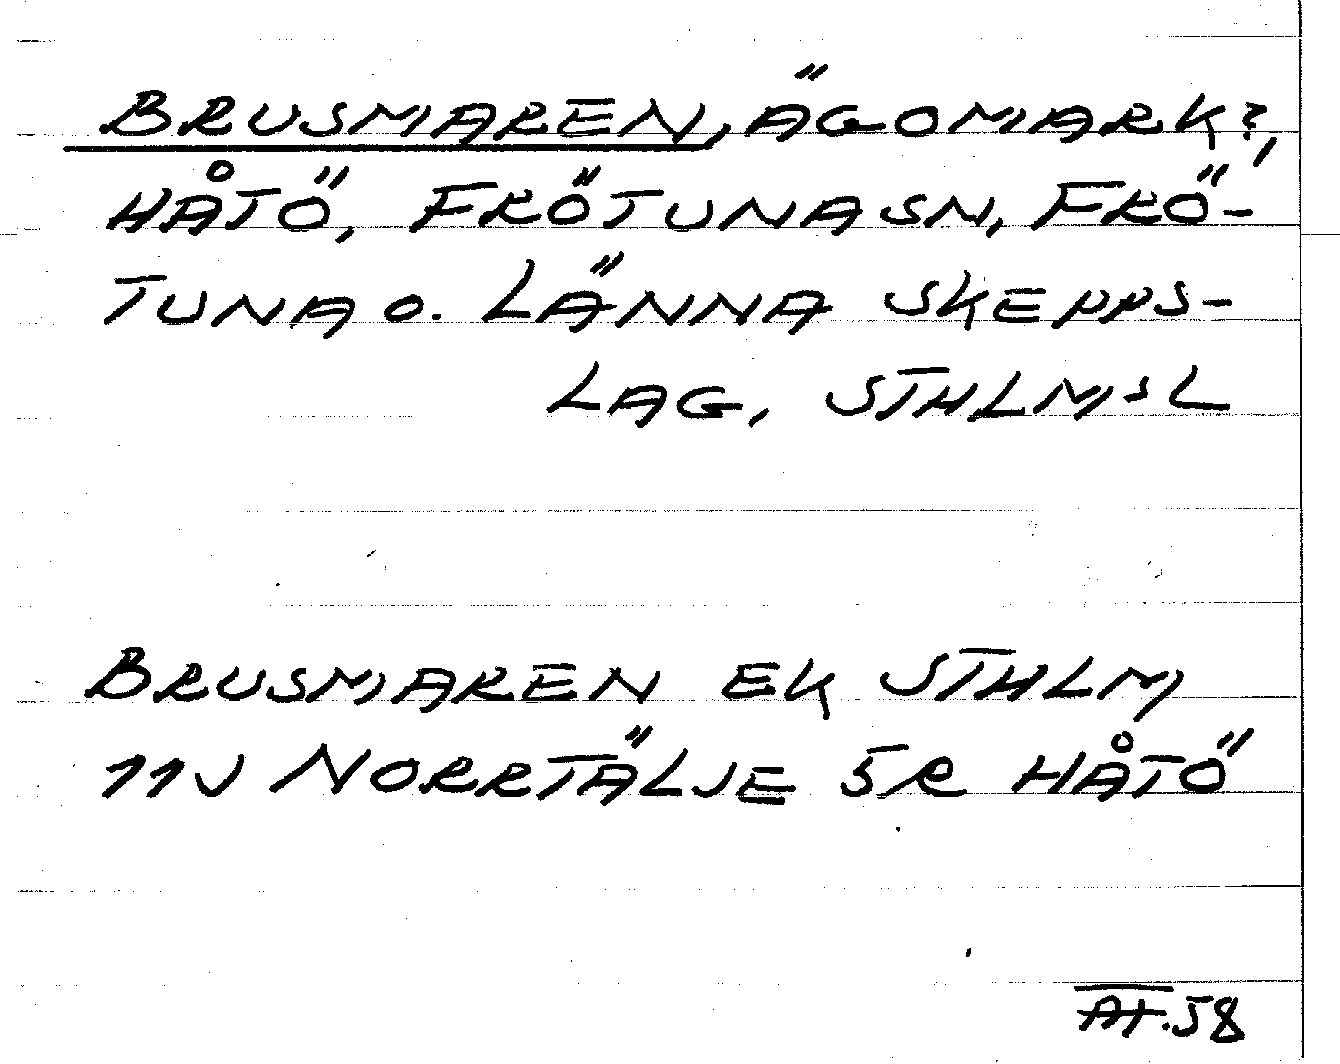 BRUSMAREN, ÄGOMARK?,
HÅTÖ, FRÖTUNA SN, FRÖ-
TUNA O. LÄNNA SKEPPS-
LAG, STHLMSL
BRUSMAREN EK STHLM
11J NORRTÄLJE SR HÅTÖ
AT.58